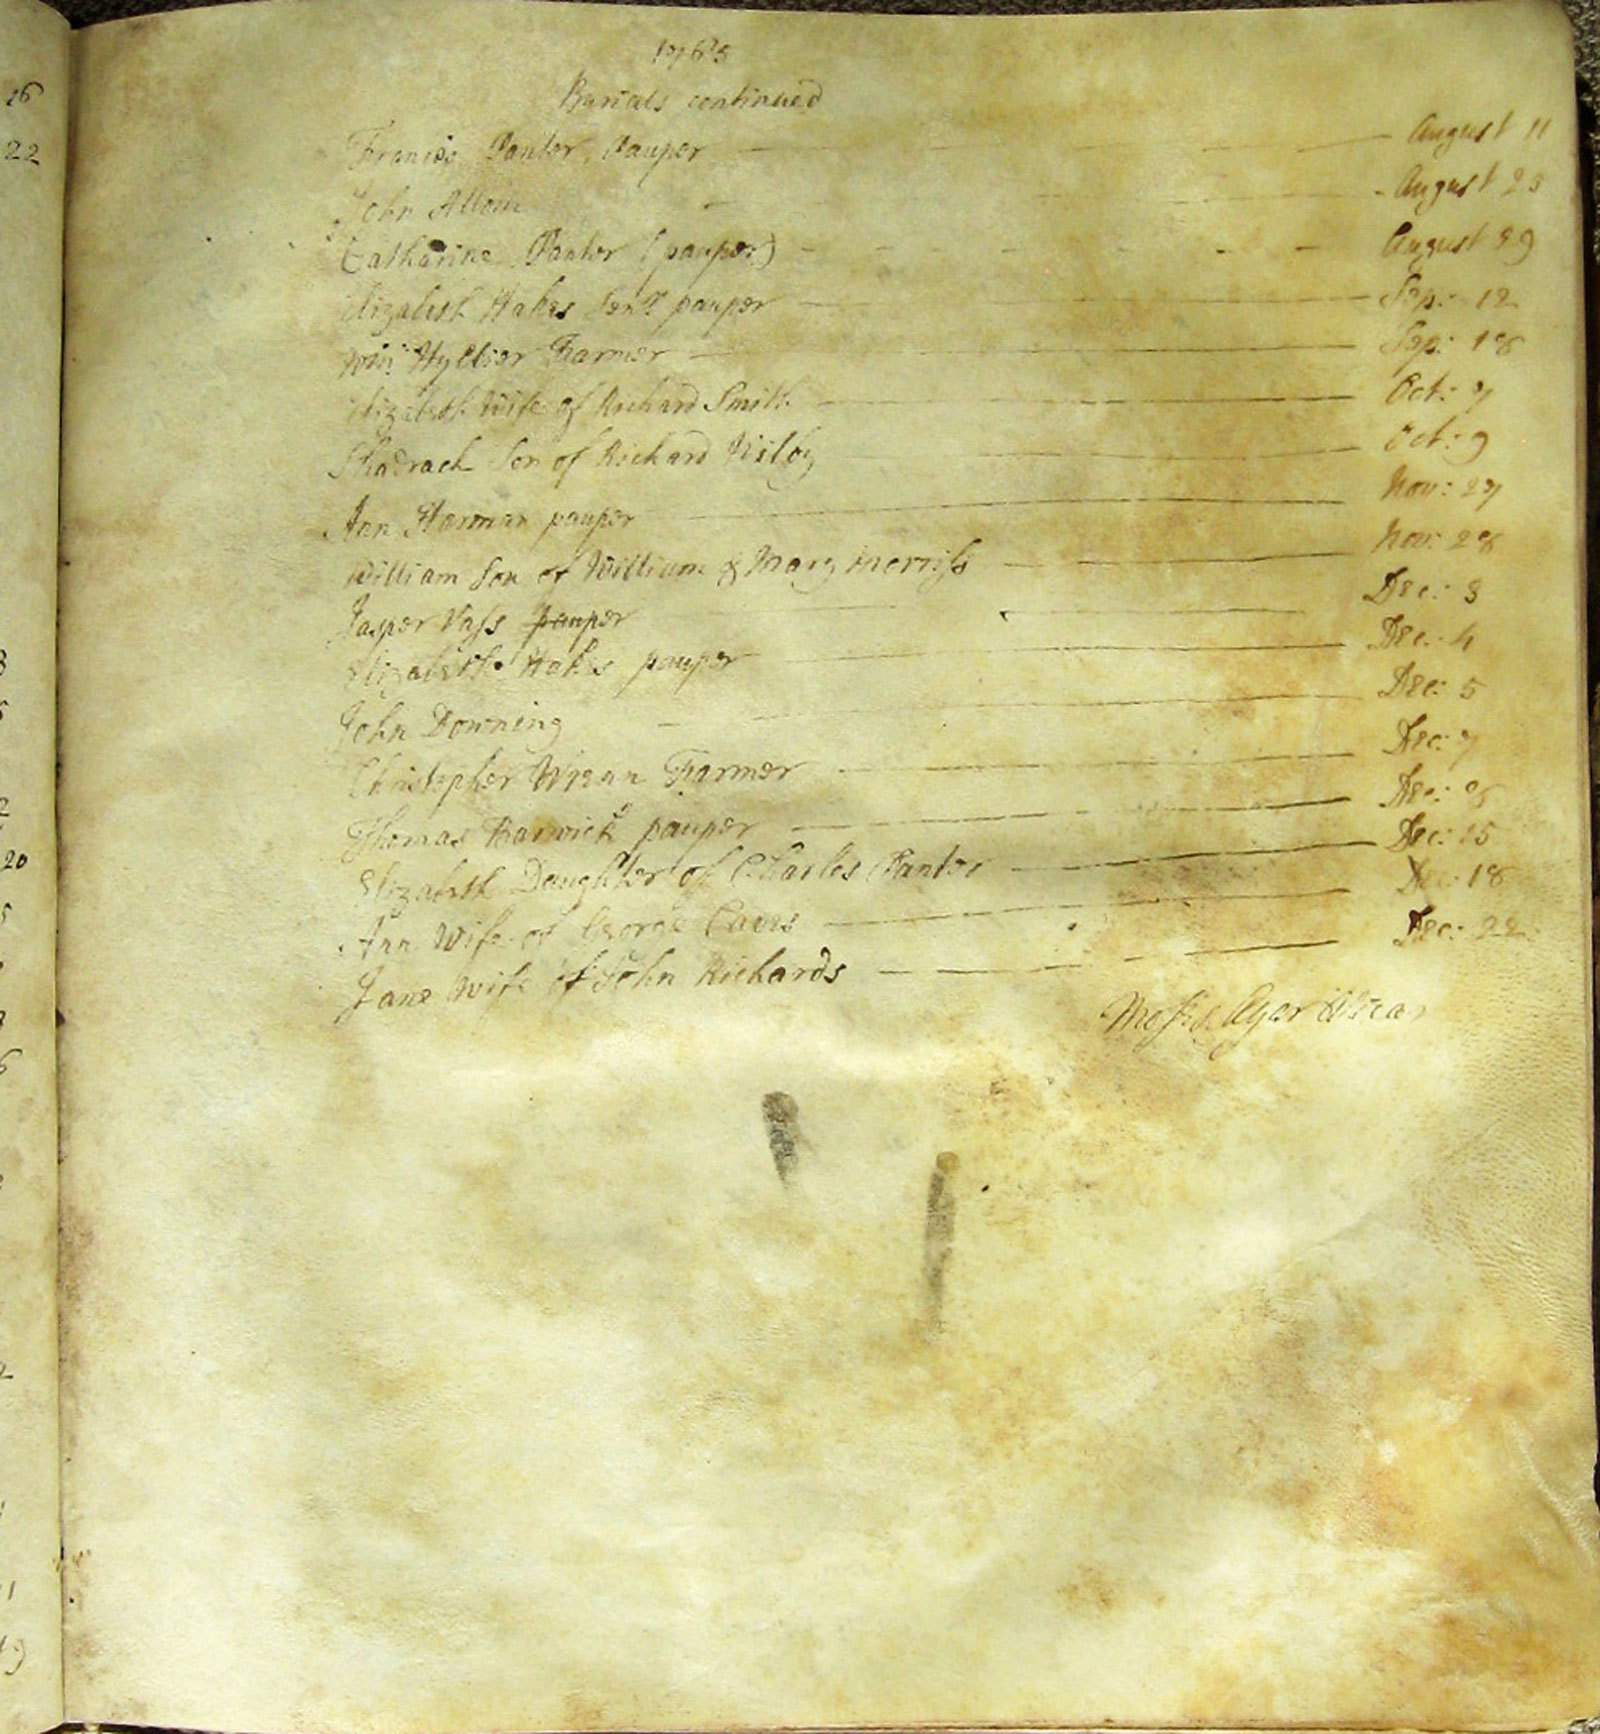 16
22
1765
Burials continued
Francis Pantor, Pauper August 11
John August 25
Catharine Pantor (pauper) August 29
Elizabeth Hakes Senr pauper Sep: 12
Wm Farmer Sep: 18
Elizabeth Wife of Richard Smith Oct: 7
Shadrach Son of Richard Oct: 9
Ann Harman pauper Nov: 27
William Son of William & Mary Morriss Nov: 28
Jasper Vass pauper Dec: 3
Elizabeth Hakes pauper Dec: 4
John Downing Dec: 5
Christopher Farmer Dec: 7
Thomas Barwick pauper Dec:
Elizabeth Daughter of Charles Pantor Dec: 15
Ann Wife of George Dec: 18
Jane Wife of John Richards Dec: 22
Vicar
20
19